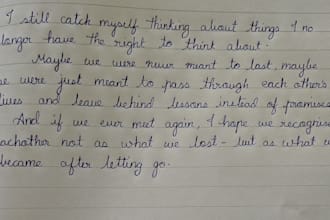 I still catch myself thinking about things I no
longer have the right to think about.
Maybe we were never meant to last, maybe
we were just meant to pass through each other's
lives and leave behind lessons instead of promises
And if we ever meet again, I hope we recognise
eachother not as what we lost - but as what we
became after letting go.